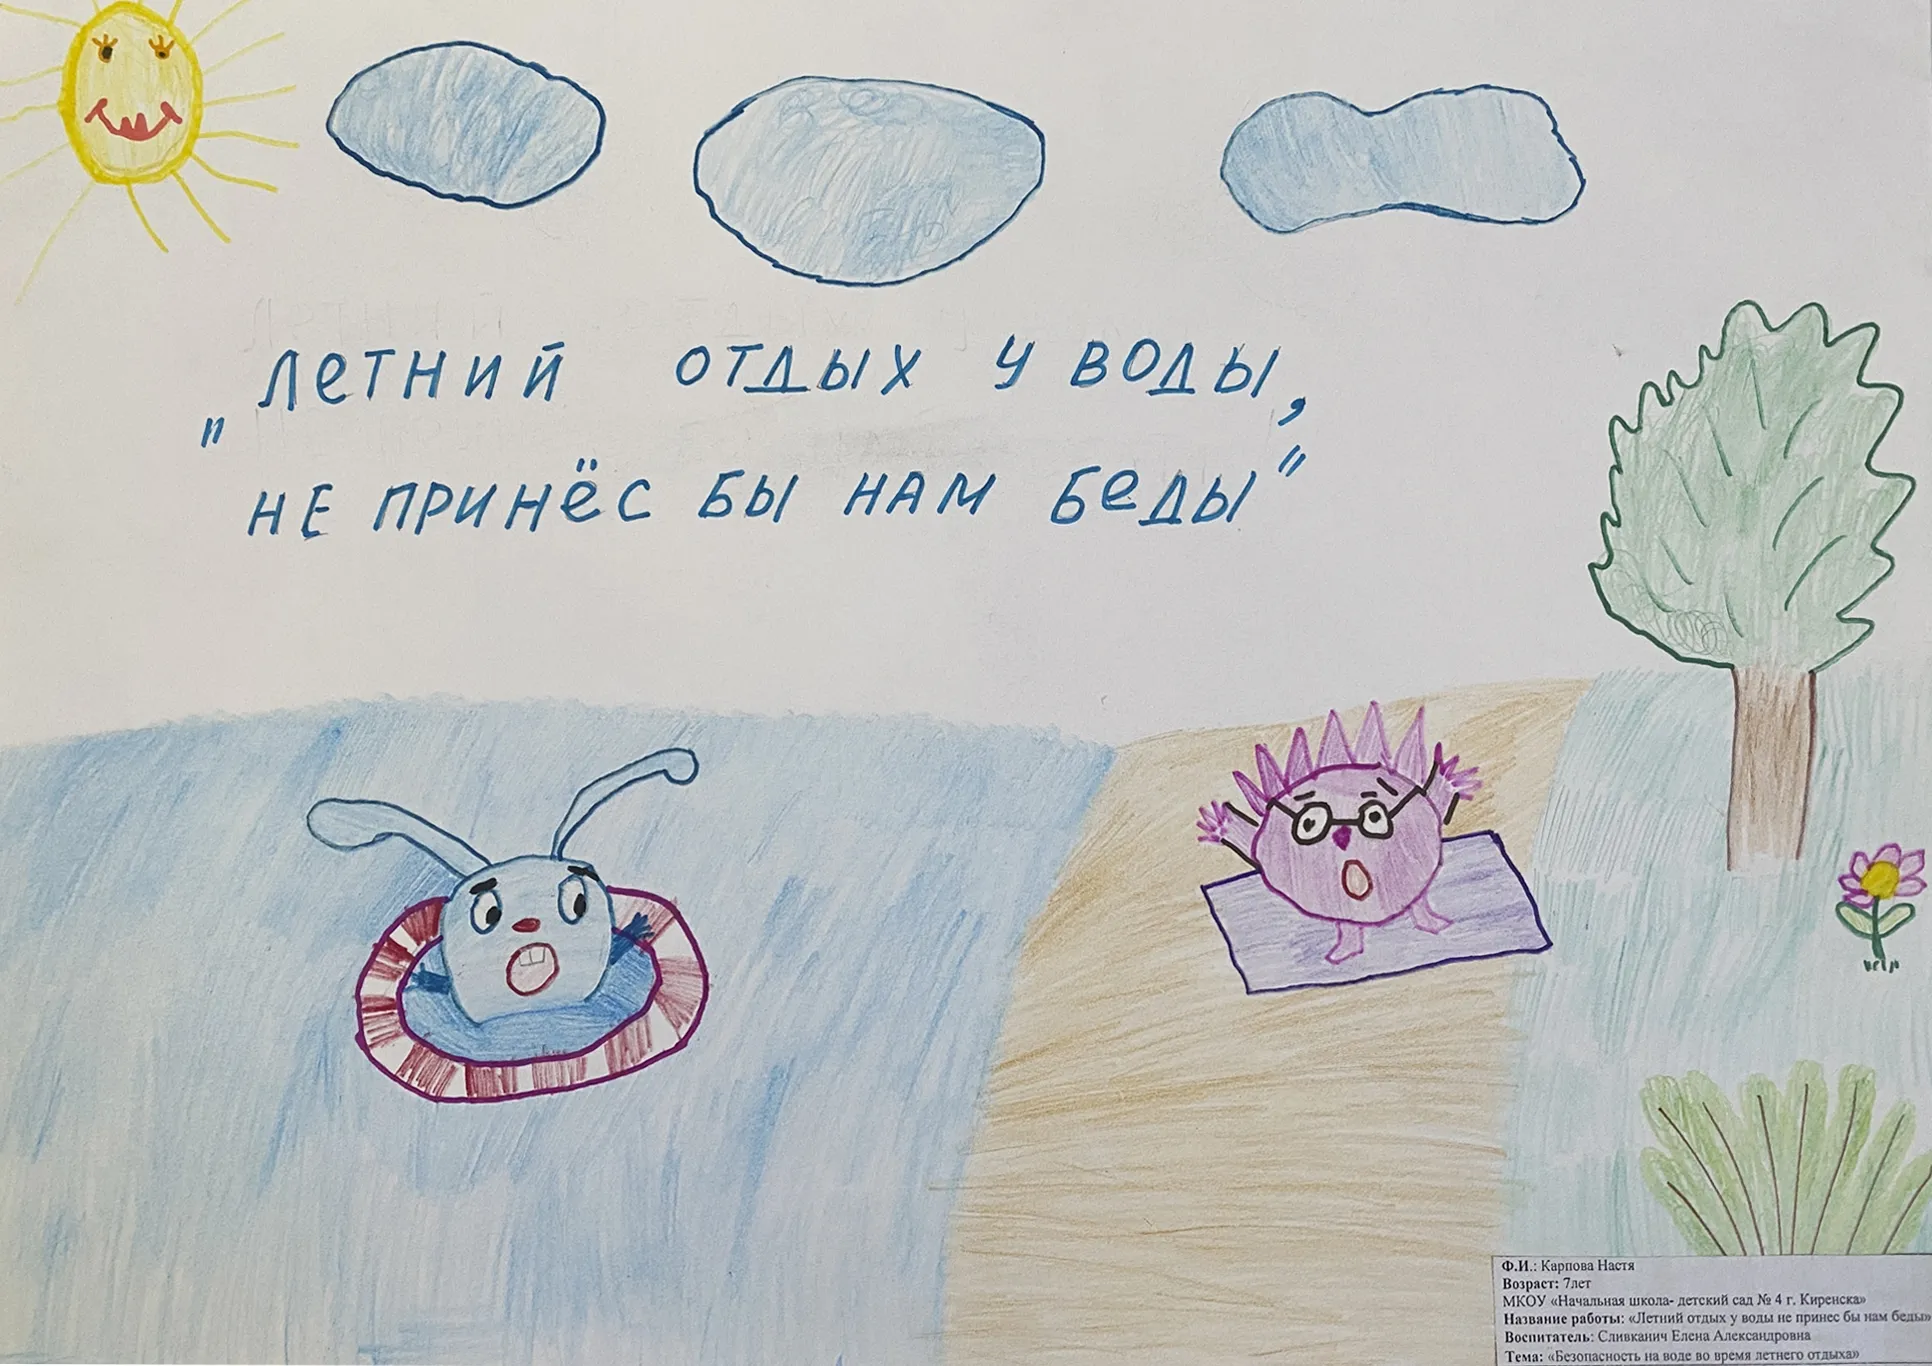 „Летний отдых у воды,
не принёс бы нам беды"
Ф.И.: Карпова Настя
Возраст: 7лет
МКОУ «Начальная школа- детский сад № 4 г. Киренска»
Название работы: «Летний отдых у воды не принес бы нам беды»
Воспитатель: Сливканич Елена Александровна
Тема: «Безопасность на воде во время летнего отдыха»